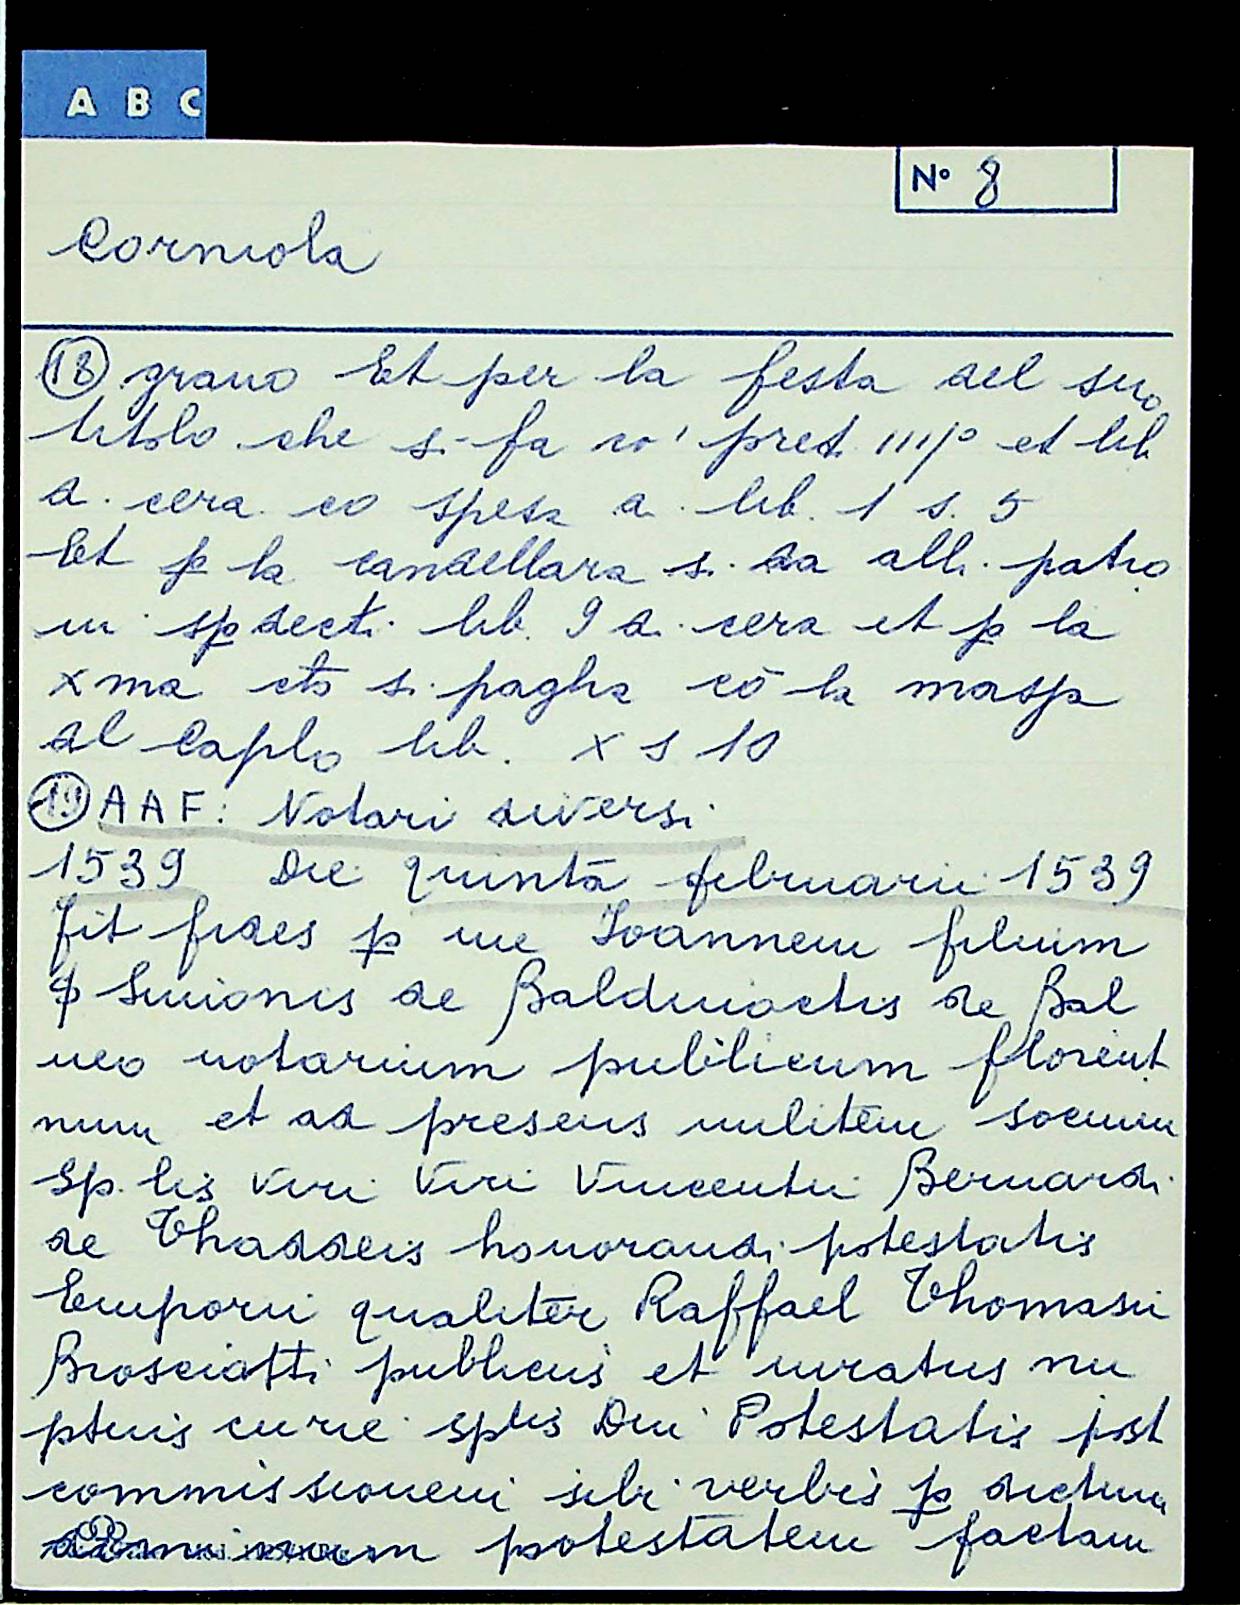 A B C
N° 8
Corniola
18 grano Et per la festa del suo
titolo che si fa co' pret. IIIJ° et lib
d. cera co spesa d. lib. 1 s. 5
Et p la candellara si da alli patro
ni spdecti lib. 9 d. cera et p la
xma cto si pagha cō la maspa
al Caplo lib. x s 10
19 AAF: Notari diversi
1539 Die quintā februarii 1539
fit fides p me Ioannem filium
Simonis de Balduinoctis de Bal
neo notarium publicum florent
num et ad presens militem socium
Sp. lis viri Viri Vincentii Bernardi
de Thaddeis honorandi potestatis
Emporii qualiter Raffael Thomasii
Brosciatti publicus et iuratus nu
ptius curie splis Dni Potestatis post
commissionem sibi verbis p dictum
potestatem factam